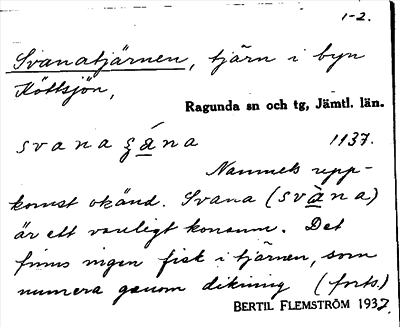 1-2.
Svanatjärnen, tjärn i byn
Köttsjön,
Ragunda sn och tg, Jämtl. län.
svana ʒána 1137.
Namnets upp-
komst okänd. Svana (svàna)
är ett vanligt konamn. Det
finns ingen fisk i tjärnen, som
numera genom dikning (forts.)
BERTIL FLEMSTRÖM 1937.